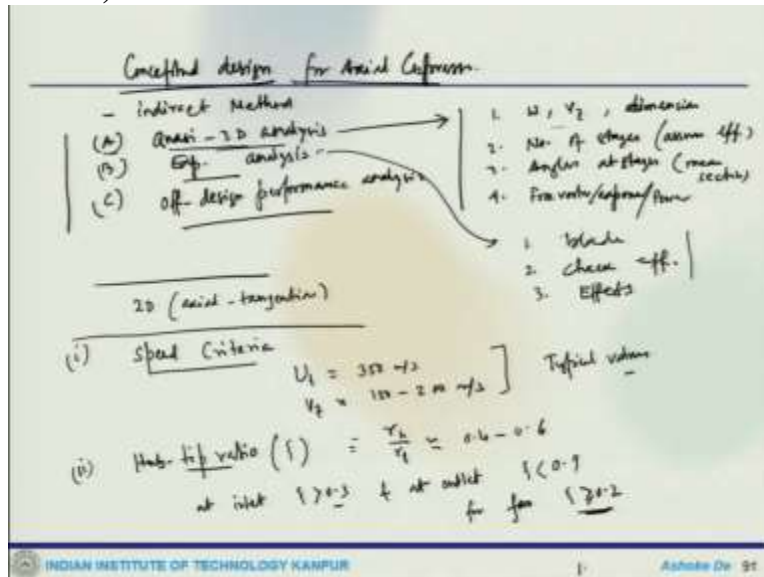 Conceptual design for Axial Compressor
- indirect Method
(A) Quasi-3D analysis
(B) Exp. analysis
(C) off-design performance analysis
1. ω, V_z, dimension
2. No. of stages (assum eff.)
3. Angles at stages (mean section)
4. Free vortex/expon/Power
1. blade
2. check eff.
3. Effects
2D (axial-tangential)
(i) Speed Criteria
U_t = 350 m/s
V_z ≈ 150 - 200 m/s
Typical values
(ii) Hub-tip ratio (ζ) = r_h/r_t ≈ - 0.6
at inlet ζ > 0.3 & at outlet ζ < 0.9
for fan ζ ≥ 0.2
INDIAN INSTITUTE OF TECHNOLOGY KANPUR
Ashoke De 91